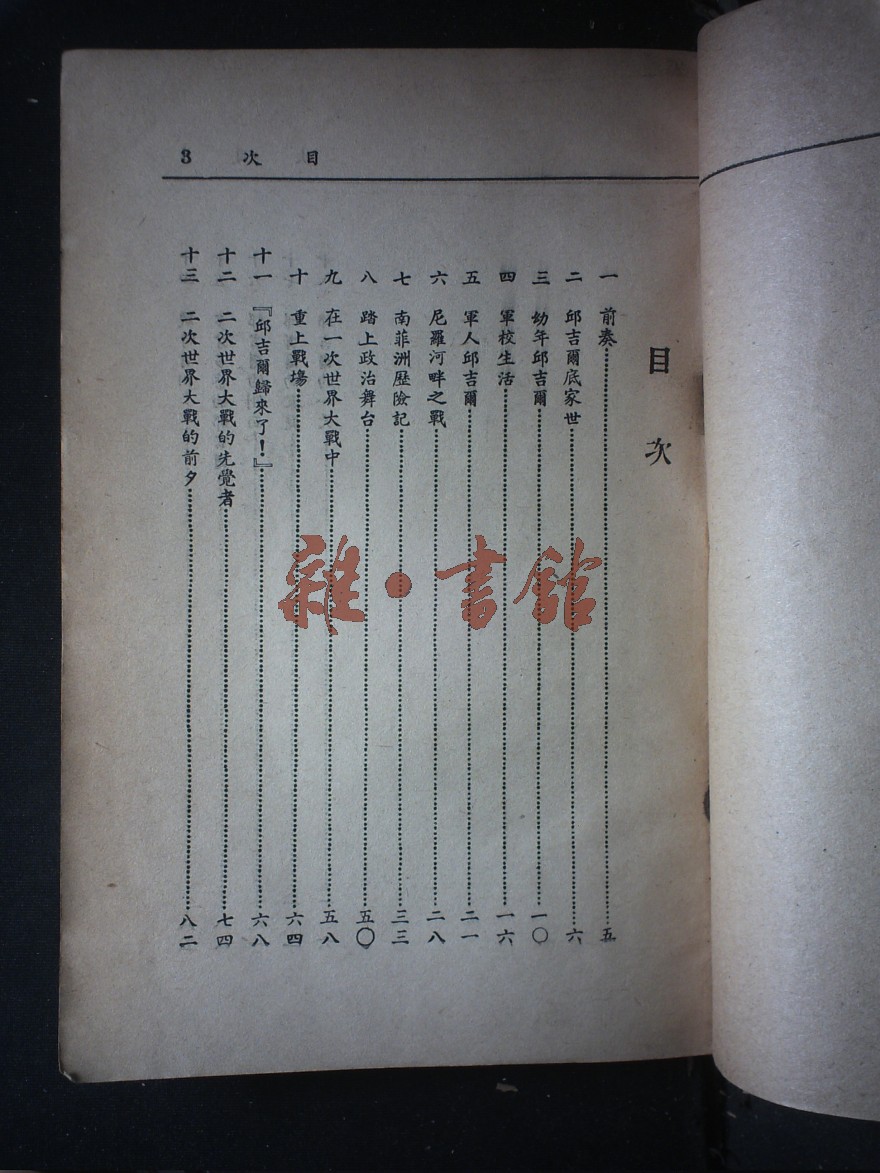 3　次　目
目次
一　前奏……五
二　邱吉爾底家世……六
三　幼年邱吉爾……一〇
四　軍校生活……一六
五　軍人邱吉爾……二一
六　尼羅河畔之戰……二八
七　南菲洲歷險記……三三
八　踏上政治舞台……五〇
九　在一次世界大戰中……五八
十　重上戰場……六四
十一　『邱吉爾歸來了！』……六八
十二　二次世界大戰的先覺者……七四
十三　二次世界大戰的前夕……八二
雜·書館